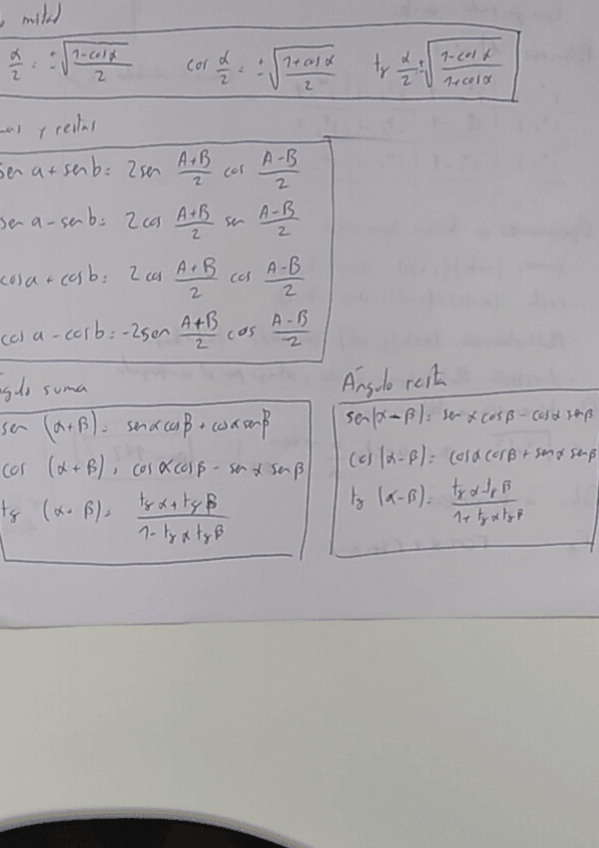 mitad
α/2 = ±√(1-cosα/2) cos α/2 = ±√(1+cosα/2) tg α/2 = ±√(1-cosα/1+cosα)
y restas
sen a + sen b = 2 sen A+B/2 cos A-B/2
sen a - sen b = 2 cos A+B/2 sen A-B/2
cos a + cos b = 2 cos A+B/2 cos A-B/2
cos a - cos b = -2 sen A+B/2 cos A-B/2
suma
sen (α+β) = senα cosβ + cosα senβ
cos (α+β) = cosα cosβ - senα senβ
tg (α+β) = tgα + tgβ / 1 - tgα tgβ
Ángulo resta
sen (α-β) = senα cosβ - cosα senβ
cos (α-β) = cosα cosβ + senα senβ
tg (α-β) = tgα - tgβ / 1 + tgα tgβ